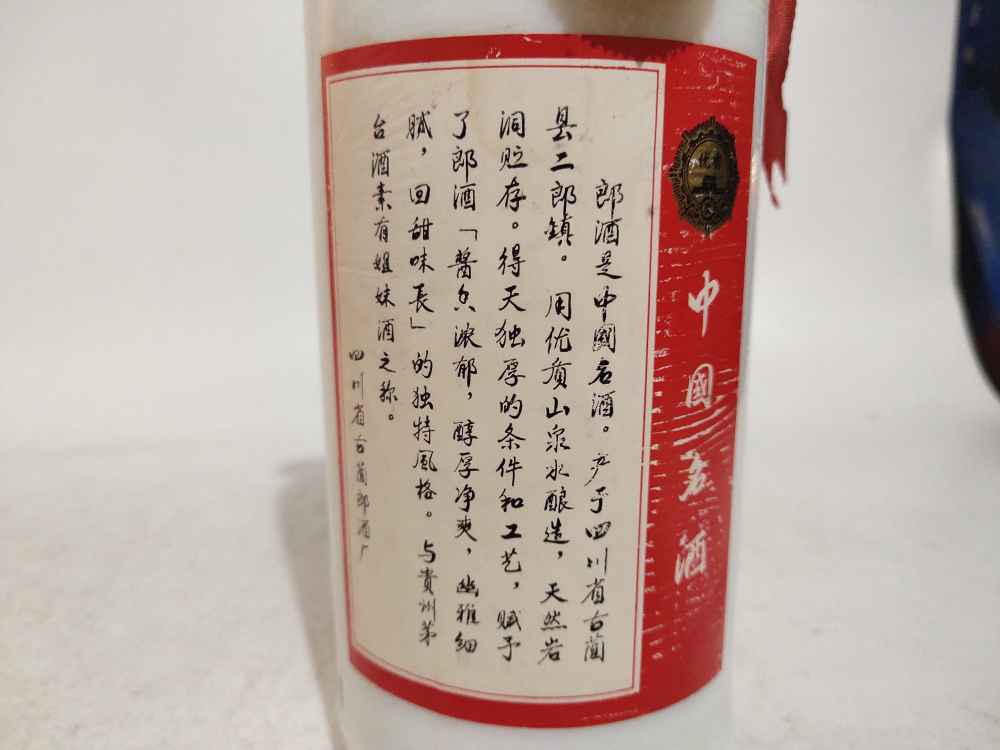 郎酒是中國名酒。产于四川省古蔺
县二郎鎮。用优质山泉水酿造，天然岩
洞贮存。得天独厚的条件和工艺，赋予
了郎酒「醬香浓郁，醇厚净爽，幽雅细
腻，回甜味長」的独特風格。与貴州茅
台酒素有姐妹酒之称。
四川省古蔺郎酒厂
中國名酒